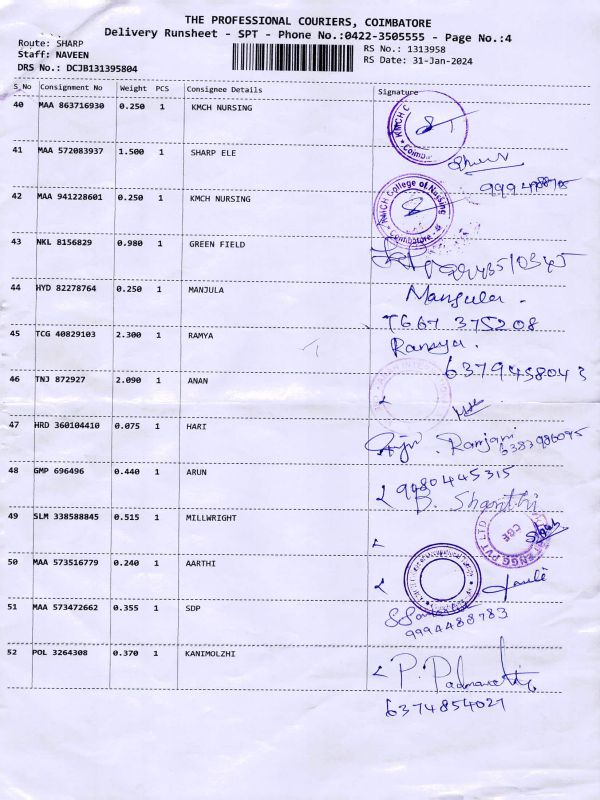 THE PROFESSIONAL COURIERS, COIMBATORE
Delivery Runsheet - SPT - Phone No.:0422-3505555 - Page No.:4
Route: SHARP
Staff: NAVEEN
DRS No.: DCJB131395804
RS No.: 1313958
RS Date: 31-Jan-2024
S_No Consignment No Weight PCS Consignee Details Signature
40 MAA 863716930 0.250 1 KMCH NURSING
KMCH C
41 MAA 572083937 1.500 1 SHARP ELE
42 MAA 941228601 0.250 1 KMCH NURSING
KMCH College of Nursing
Coimbatore
43 NKL 8156829 0.980 1 GREEN FIELD
44 HYD 82278764 0.250 1 MANJULA
Mangula.
45 TCG 40829103 2.300 1 RAMYA
Ramya.
46 TNJ 872927 2.090 1 ANAN
47 HRD 360104410 0.075 1 HARI
Ramjani
48 GMP 696496 0.440 1 ARUN
9980445315
B. Shanthi
49 SLM 338588845 0.515 1 MILLWRIGHT
ENGG PVT LTD
CBE
50 MAA 573516779 0.240 1 AARTHI
51 MAA 573472662 0.355 1 SDP
9994488783
52 POL 3264308 0.370 1 KANIMOLZHI
P. Padmavathi
6374854027